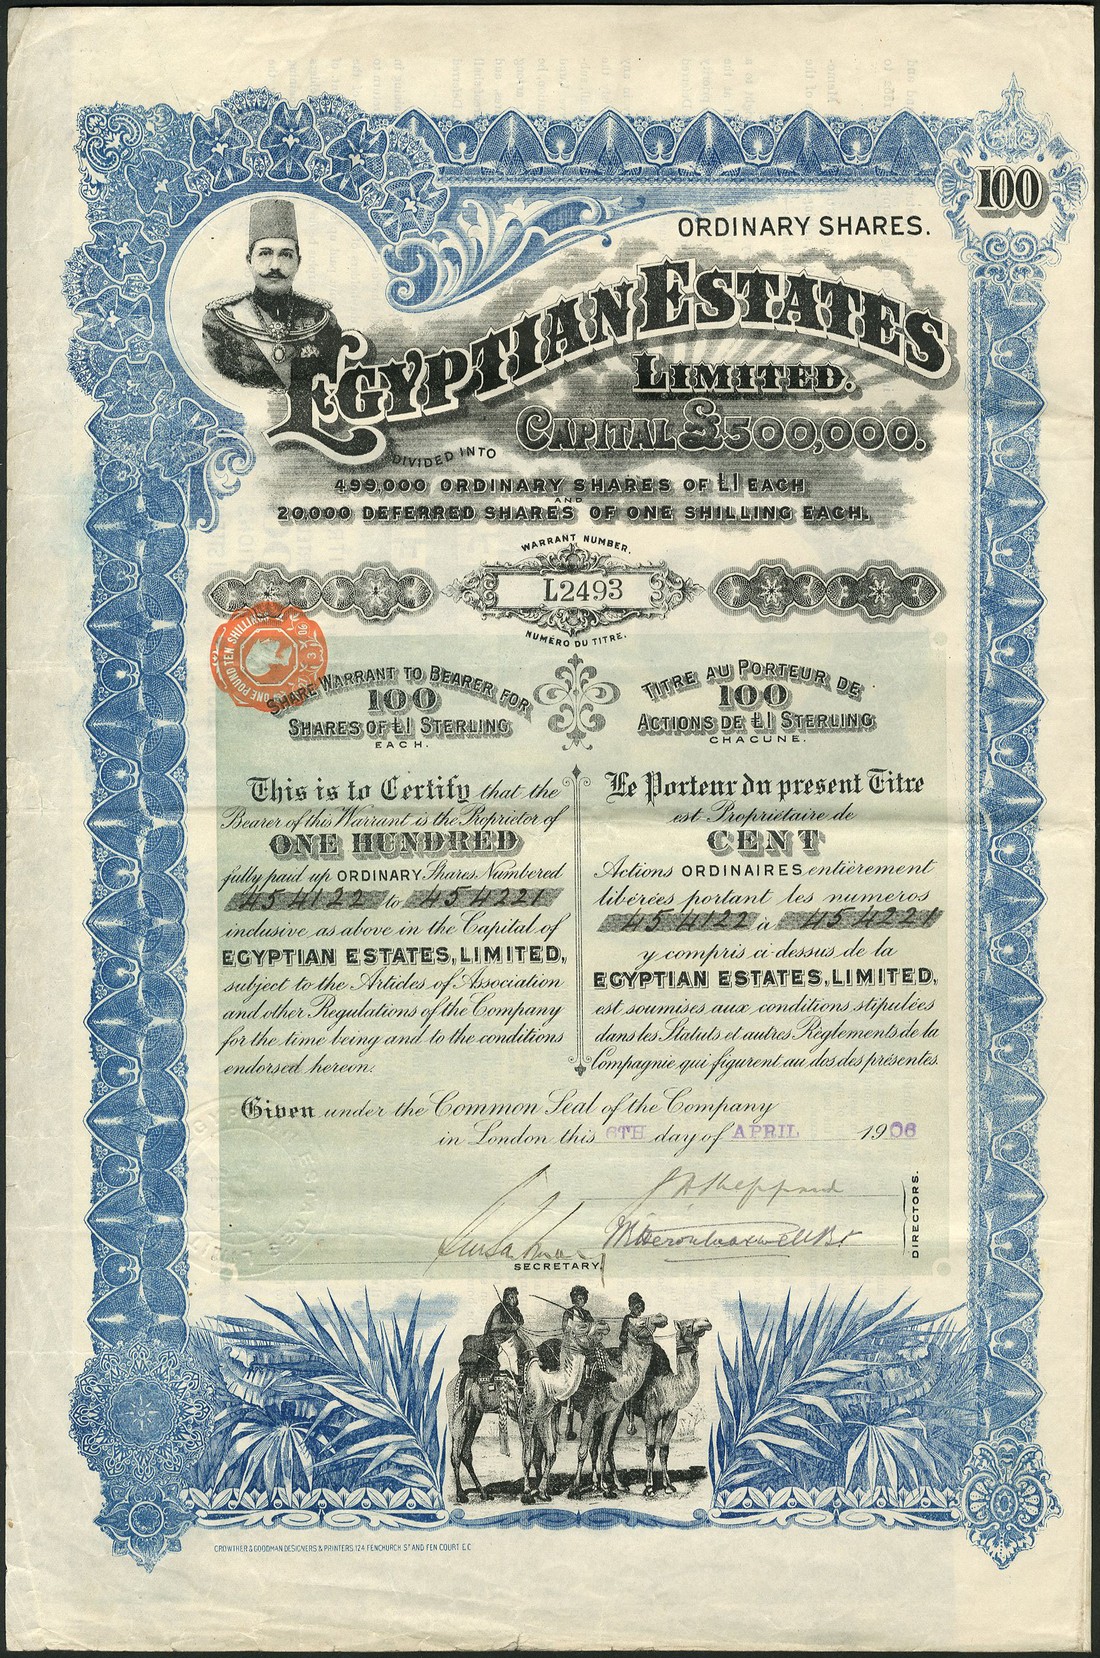 100
ORDINARY SHARES.
EGYPTIAN ESTATES
LIMITED.
CAPITAL £500,000.
DIVIDED INTO
499,000 ORDINARY SHARES OF £1 EACH
AND
20,000 DEFERRED SHARES OF ONE SHILLING EACH.
WARRANT NUMBER.
L2493
NUMÉRO DU TITRE.
ONE POUND TEN SHILLINGS
SHARE WARRANT TO BEARER FOR
100
SHARES OF £1 STERLING
EACH.
This is to Certify that the
Bearer of this Warrant is the Proprietor of
ONE HUNDRED
fully paid up ORDINARY Shares Numbered
454122 to 454221
inclusive as above in the Capital of
EGYPTIAN ESTATES, LIMITED,
subject to the Articles of Association
and other Regulations of the Company
for the time being and to the conditions
endorsed herein.
TITRE AU PORTEUR DE
100
ACTIONS DE £1 STERLING
CHACUNE.
Le Porteur du present Titre
est Propriétaire de
CENT
Actions ORDINAIRES entièrement
libérées portant les numeros
454122 à 454221
y compris ci-dessus de la
EGYPTIAN ESTATES, LIMITED,
est soumises aux conditions stipulées
dans les Statuts et autres Règlements de la
Compagnie qui figurent au dos des présentes.
Given under the Common Seal of the Company
in London this 6TH day of APRIL 1906
DIRECTORS.
SECRETARY.
CROWTHER & GOODMAN DESIGNERS & PRINTERS. 124 FENCHURCH ST AND FEN COURT E.C